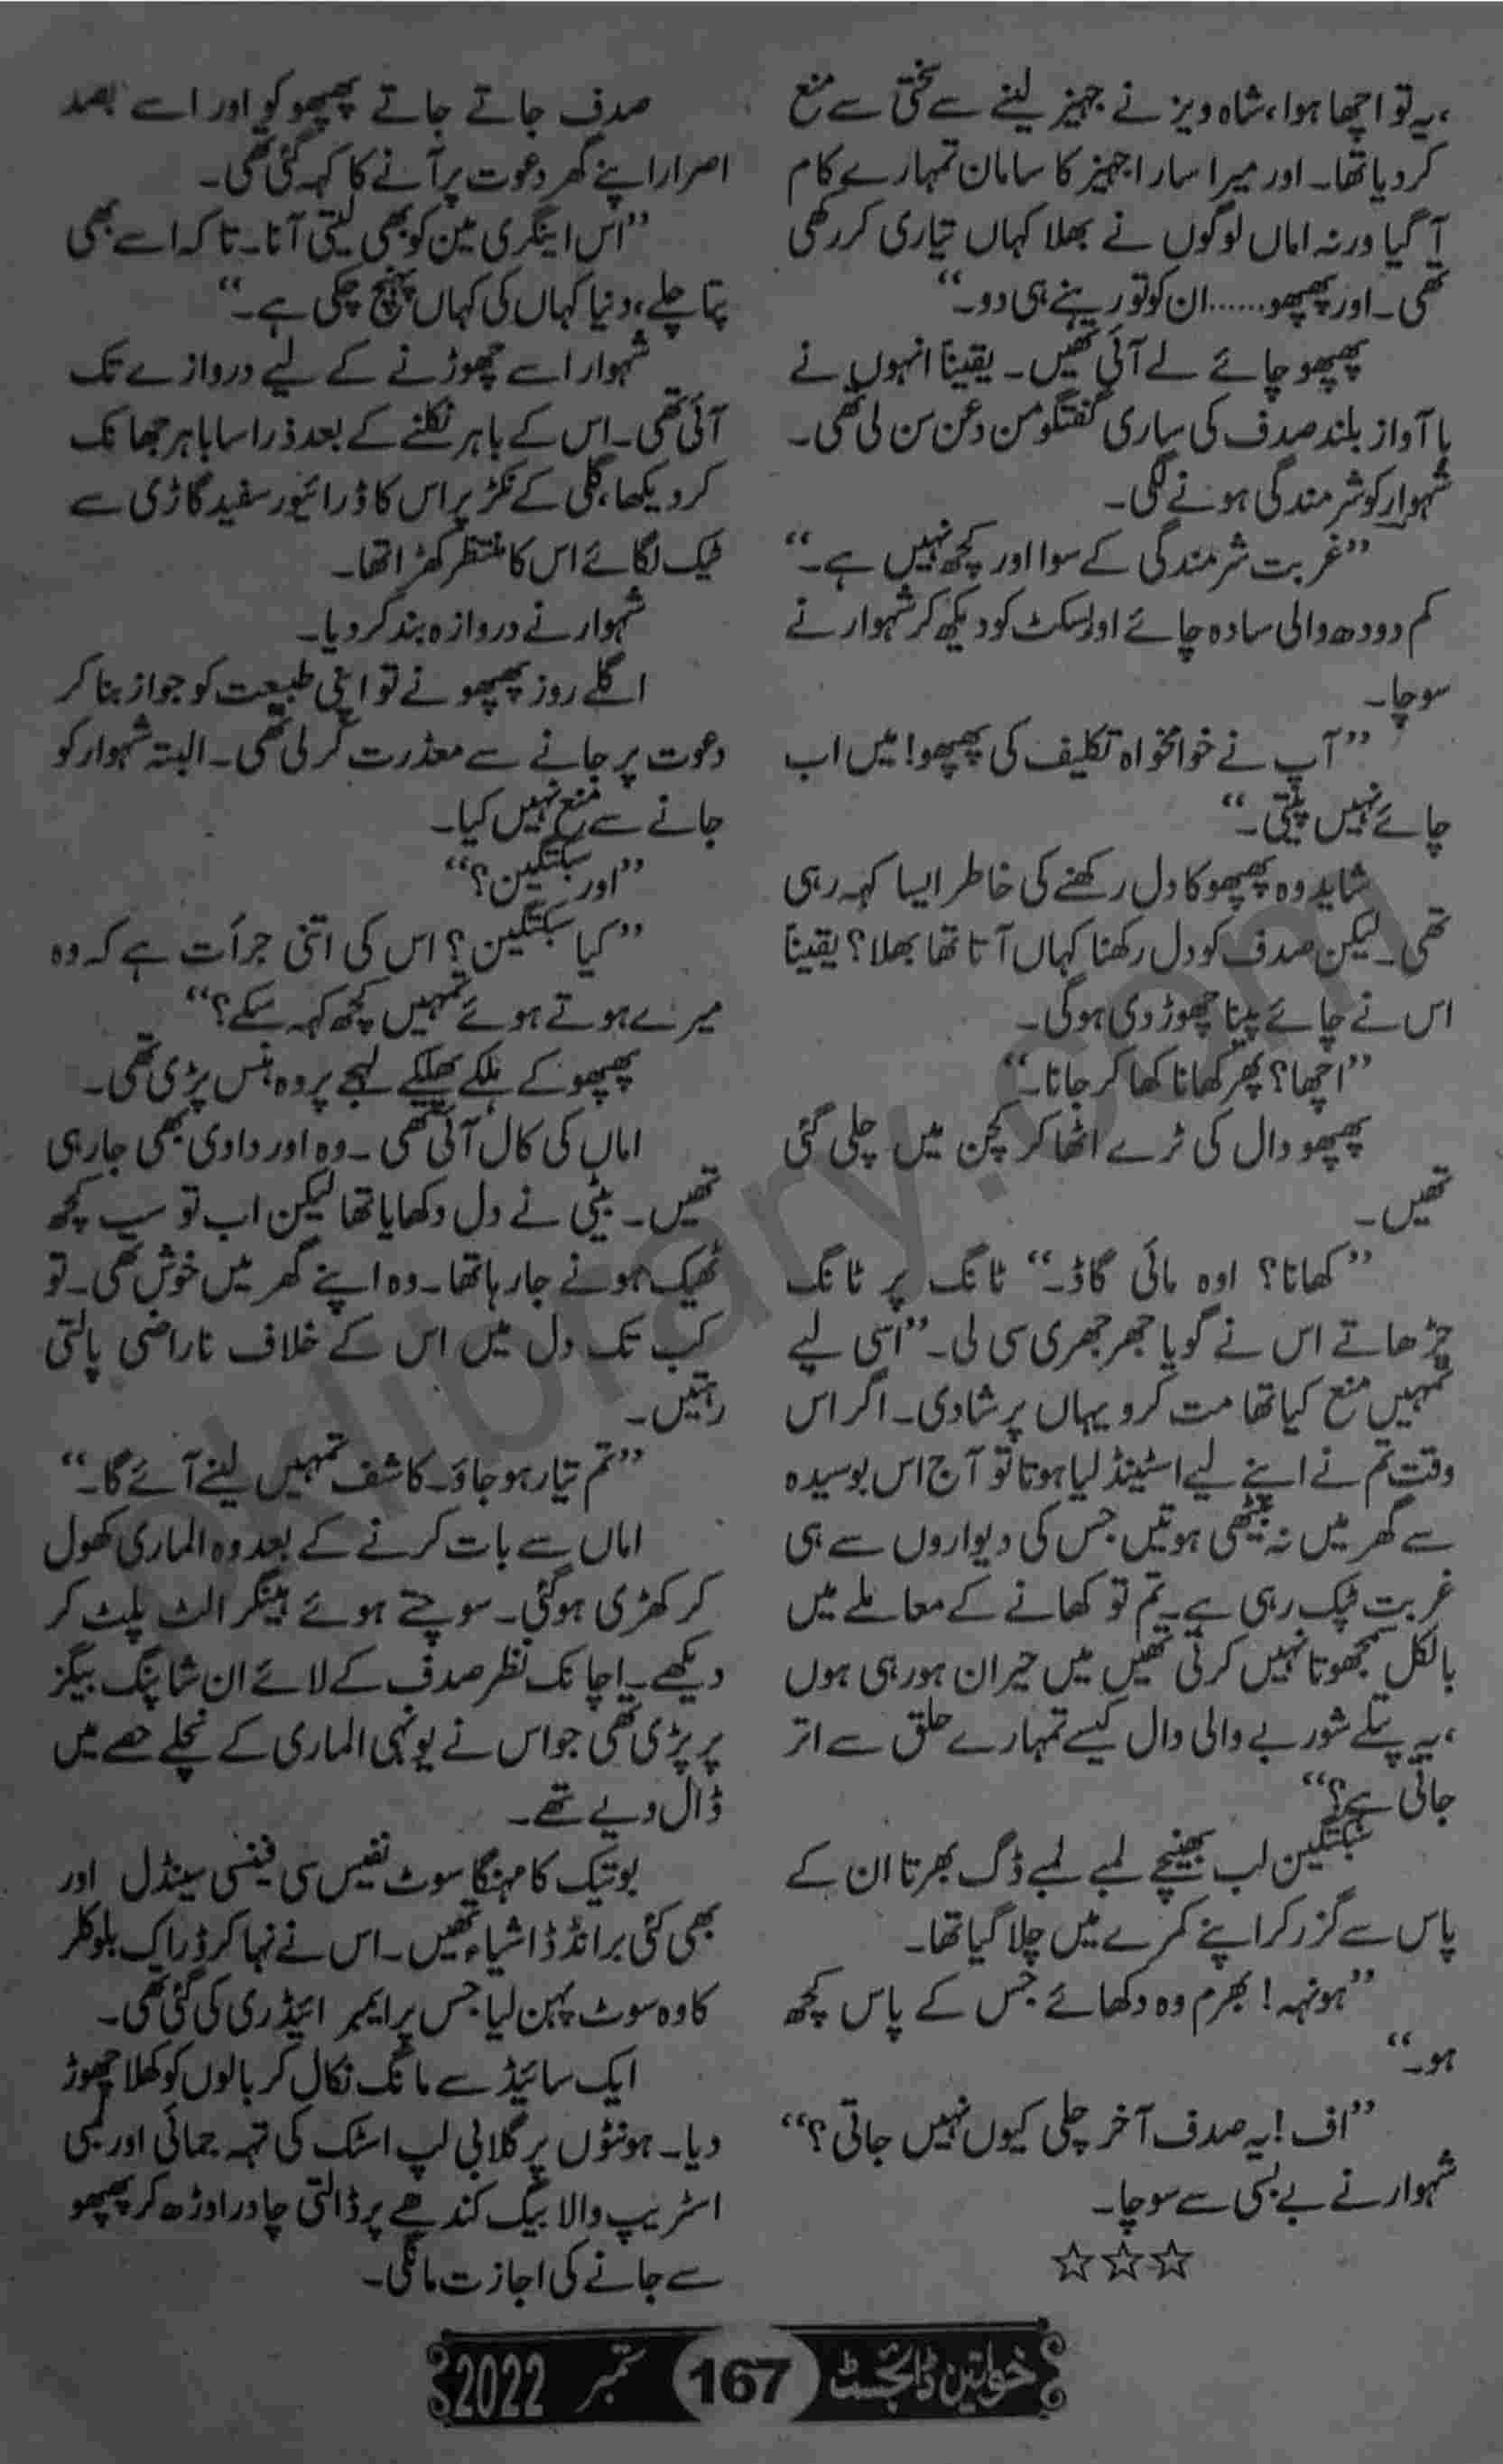 ،یہ تو اچھا ہوا، شاہ ویز نے جہیز لینے سے سختی سے منع
کر دیا تھا۔ اور میرا سارا جہیز کا سامان تمہارے کام
آ گیا ورنہ اماں لوگوں نے بھلا کہاں تیاری کر رکھی
تھی۔ اور پھپھو...... ان کو تو رہنے ہی دو۔“
پھپھو چائے لے آئی تھیں۔ یقیناً انہوں نے
با آواز بلند صدف کی ساری گفتگو من و عن سن لی تھی۔
شہوار کو شرمندگی ہونے لگی۔
”غربت شرمندگی کے سوا اور کچھ نہیں ہے۔“
کم دودھ والی سادہ چائے اور بسکٹ کو دیکھ کر شہوار نے
سوچا۔
”آپ نے خوامخواہ تکلیف کی پھپھو! میں اب
چائے نہیں پیتی۔“
شاید وہ پھپھو کا دل رکھنے کی خاطر ایسا کہہ رہی
تھی۔ لیکن صدف کو دل رکھنا کہاں آتا تھا بھلا؟ یقیناً
اس نے چائے پینا چھوڑ دی ہوگی۔
”اچھا؟ پھر کھانا کھا کر جانا۔“
پھپھو دال کی ٹرے اٹھا کر کچن میں چلی گئی
تھیں۔
”کھانا؟ اوہ مائی گاڈ۔“ ٹانگ پر ٹانگ
چڑھاتے اس نے گویا جھرجھری سی لی۔ ”اسی لیے
تمہیں منع کیا تھا مت کرو یہاں پر شادی۔ اگر اس
وقت تم نے اپنے لیے اسٹینڈ لیا ہوتا تو آج اس بوسیدہ
سے گھر میں نہ بیٹھی ہوتیں جس کی دیواروں سے ہی
غربت ٹپک رہی ہے۔ تم تو کھانے کے معاملے میں
بالکل سمجھوتا نہیں کرتی تھیں میں حیران ہو رہی ہوں
،یہ پتلے شوربے والی دال کیسے تمہارے حلق سے اتر
جاتی ہے؟“
سبکتگین لب بھینچے لمبے لمبے ڈگ بھرتا ان کے
پاس سے گزر کر اپنے کمرے میں چلا گیا تھا۔
”ہونہہ! بھرم وہ دکھائے جس کے پاس کچھ
ہو۔“
”اف! یہ صدف آخر چلی کیوں نہیں جاتی؟“
شہوار نے بے بسی سے سوچا۔
☆☆☆
صدف جاتے جاتے پھپھو کو اور اسے بصد
اصرار اپنے گھر دعوت پر آنے کا کہہ گئی تھی۔
”اس اینگری مین کو بھی لیتی آنا۔ تاکہ اسے بھی
پتا چلے، دنیا کہاں کی کہاں پہنچ چکی ہے۔“
شہوار اسے چھوڑنے کے لیے دروازے تک
آئی تھی۔ اس کے باہر نکلنے کے بعد ذرا سا باہر جھانک
کر دیکھا، گلی کے نکڑ پر اس کا ڈرائیور سفید گاڑی سے
ٹیک لگائے اس کا منتظر کھڑا تھا۔
شہوار نے دروازہ بند کر دیا۔
اگلے روز پھپھو نے تو اپنی طبیعت کو جواز بنا کر
دعوت پر جانے سے معذرت کر لی تھی۔ البتہ شہوار کو
جانے سے منع نہیں کیا۔
”اور سبکتگین؟“
”کیا سبکتگین؟ اس کی اتنی جرأت ہے کہ وہ
میرے ہوتے ہوئے تمہیں کچھ کہہ سکے؟“
پھپھو کے ہلکے پھلکے لہجے پر وہ ہنس پڑی تھی۔
اماں کی کال آئی تھی۔ وہ اور دادی بھی جا رہی
تھیں۔ بیٹی نے دل دکھایا تھا لیکن اب تو سب کچھ
ٹھیک ہونے جا رہا تھا۔ وہ اپنے گھر میں خوش تھی۔ تو
کب تک دل میں اس کے خلاف ناراضی پالتی
رہتیں۔
”تم تیار ہو جاؤ۔ کاشف تمہیں لینے آئے گا۔“
اماں سے بات کرنے کے بعد وہ الماری کھول
کر کھڑی ہوگئی۔ سوچتے ہوئے ہینگر الٹ پلٹ کر
دیکھے۔ اچانک نظر صدف کے لائے ان شاپنگ بیگز
پر پڑی تھی جو اس نے یونہی الماری کے نچلے حصے میں
ڈال دیے تھے۔
بوتیک کا مہنگا سوٹ نفیس سی فینسی سینڈل اور
بھی کئی برانڈڈ اشیاء تھیں۔ اس نے نہا کر ڈارک بلو کلر
کا وہ سوٹ پہن لیا جس پر ایمبر ائیڈری کی گئی تھی۔
ایک سائیڈ سے مانگ نکال کر بالوں کو کھلا چھوڑ
دیا۔ ہونٹوں پر گلابی لپ اسٹک کی تہہ جمائی اور لمبی
اسٹریپ والا بیگ کندھے پر ڈالتی چادر اوڑھ کر پھپھو
سے جانے کی اجازت مانگی۔
خواتین ڈائجسٹ 167 ستمبر 2022
oklibrary.com